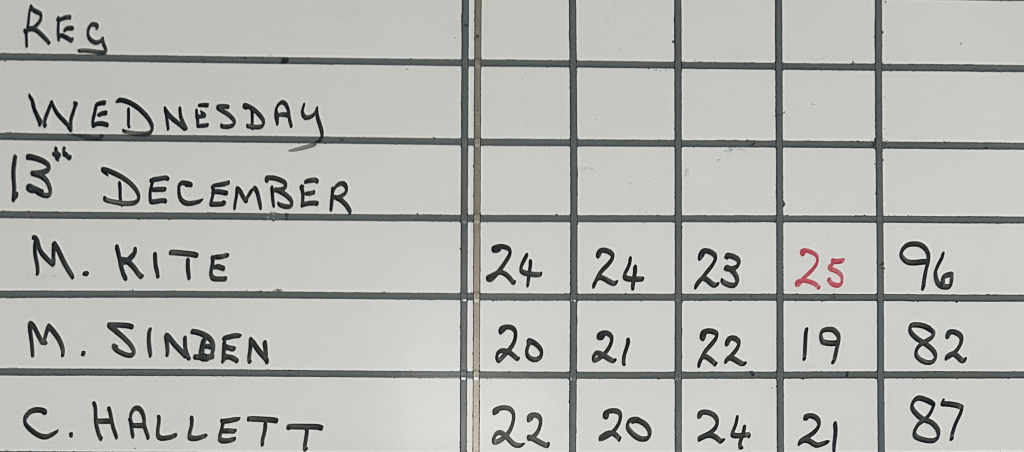 REG
WEDNESDAY
13th DECEMBER
M. KITE 24 24 23 25 96
M. SINDEN 20 21 22 19 82
C. HALLETT 22 20 24 21 87